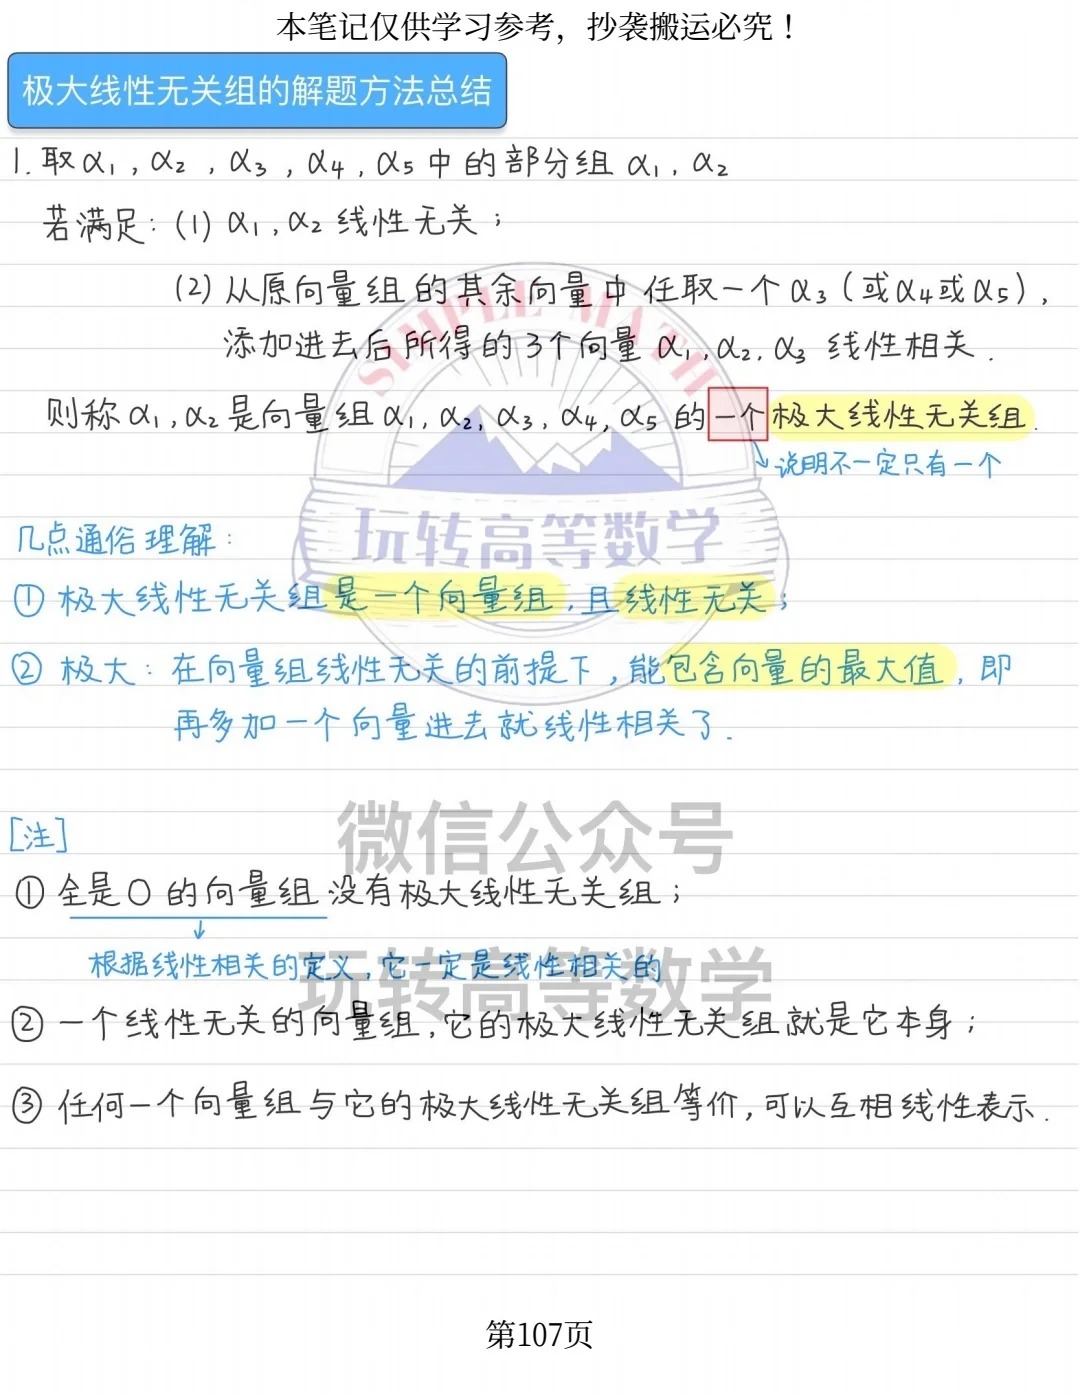 本笔记仅供学习参考，抄袭搬运必究！
极大线性无关组的解题方法总结
1. 取α₁, α₂, α₃, α₄, α₅中的部分组 α₁, α₂
若满足: (1) α₁, α₂ 线性无关;
(2) 从原向量组的其余向量中任取一个α₃(或α₄或α₅),
添加进去后所得的3个向量 α₁, α₂, α₃ 线性相关.
则称α₁, α₂是向量组α₁, α₂, α₃, α₄, α₅的一个极大线性无关组.
说明不一定只有一个
几点通俗理解:
① 极大线性无关组是一个向量组, 且线性无关;
② 极大: 在向量组线性无关的前提下, 能包含向量的最大值, 即
再多加一个向量进去就线性相关了.
[注]
① 全是0的向量组没有极大线性无关组;
根据线性相关的定义, 它一定是线性相关的
② 一个线性无关的向量组, 它的极大线性无关组就是它本身;
③ 任何一个向量组与它的极大线性无关组等价, 可以互相线性表示.
SIMPLE MATH
玩转高等数学
微信公众号
玩转高等数学
第107页